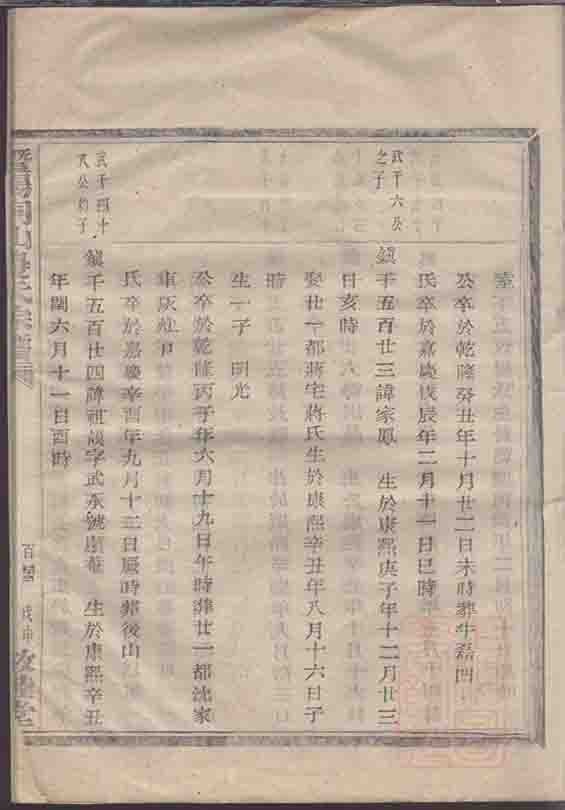 公卒於乾隆癸丑年十月廿二日未時葬牛磊四
氏卒於嘉慶戊辰年二月十一日巳時
武千六公
之子
鎮千五百廿三諱家鳳 生於康熙庚子年十二月廿三
日亥時
娶廿一都蔣宅蔣氏生於康熙辛丑年八月十六日子
時
生一子 明光
公卒於乾隆丙子年六月十九日午時葬廿一都沈家
車灰灶戶
氏卒於嘉慶辛酉年九月十二日辰時葬後山
武千四十
九公幼子
鎮千五百廿四諱祖謨字武承號 生於康熙辛丑
年閏六月十一日酉時
宗譜
戊申
堂